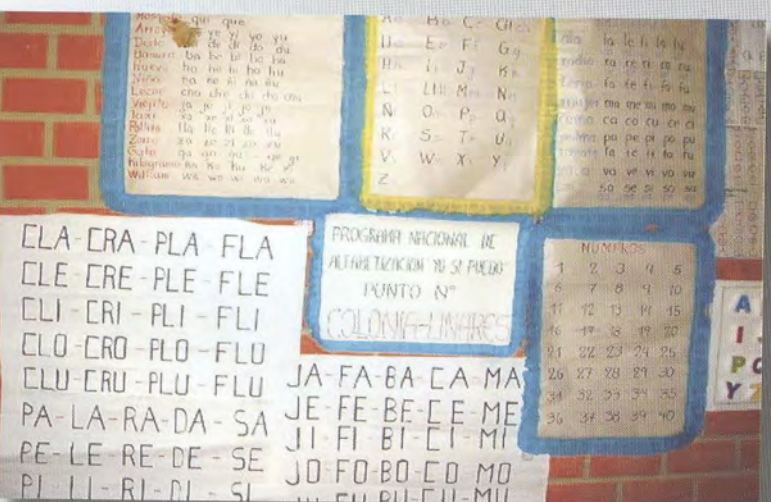 qui que
ye yi yo yu
Dedo da de di do du
ba be bi bo bu
Huevo ha he hi ho hu
Niño ña ñe ñi ño ñu
cha che chi cho chu
Viejito ja je ji jo ju
Taxi xa xe xi xo xu
Pollito lla lle lli llo llu
Zorro za ze zi zo zu
Gato ga go gu
Kilogramo ka ko ku ke ki
William wa we wi wo wu
C Ch
E F G
I J K
L Ll M N
Ñ O P Q
R S T U
V W X Y
Z
la le li lo lu
radio ra re ri ro ru
fa fe fi fo fu
mujer ma me mi mo mu
ca co cu ce ci
pa pe pi po pu
ta te ti to tu
va ve vi vo vu
sa se si so su
CLA-CRA-PLA-FLA
CLE-CRE-PLE-FLE
CLI-CRI-PLI-FLI
CLO-CRO-PLO-FLO
CLU-CRU-PLU-FLU
PA-LA-RA-DA-SA
PE-LE-RE-DE-SE
PI-LI-RI-DI-SI
PROGRAMA NACIONAL DE
ALFABETIZACION YO SI PUEDO
PUNTO N°
COLONIA-LINARES
JA-FA-BA-CA-MA
JE-FE-BE-CE-ME
JI-FI-BI-CI-MI
JO-FO-BO-CO MO
JU-FU-BU-CU-MU
NUMEROS
1 2 3 4 5
6 7 8 9 10
11 12 13 14 15
16 17 18 19 20
21 22 23 24 25
26 27 28 29 30
31 32 33 34 35
36 37 38 39 40
A
I J
P
Y Z